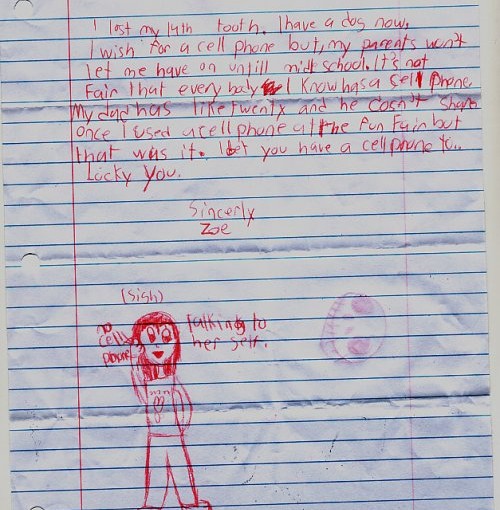 I lost my 14th tooth. I have a dog now.
I wish for a cell phone but, my parents won't
let me have on untill midt school. It's not
Fair that every body I know has a sell phone
My dad has like twenty and he dosn't share
once I used a cell phone at the Fun Fair but
that was it. I bet you have a cell phone to..
Lucky You.
Sincerly
Zoe
(sigh)
no
cell
phone
Talking to
her self.